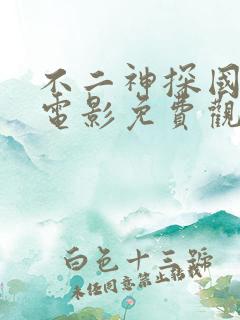 不二神探國
電影免費觀
白色十三號
未經同意禁止轉載